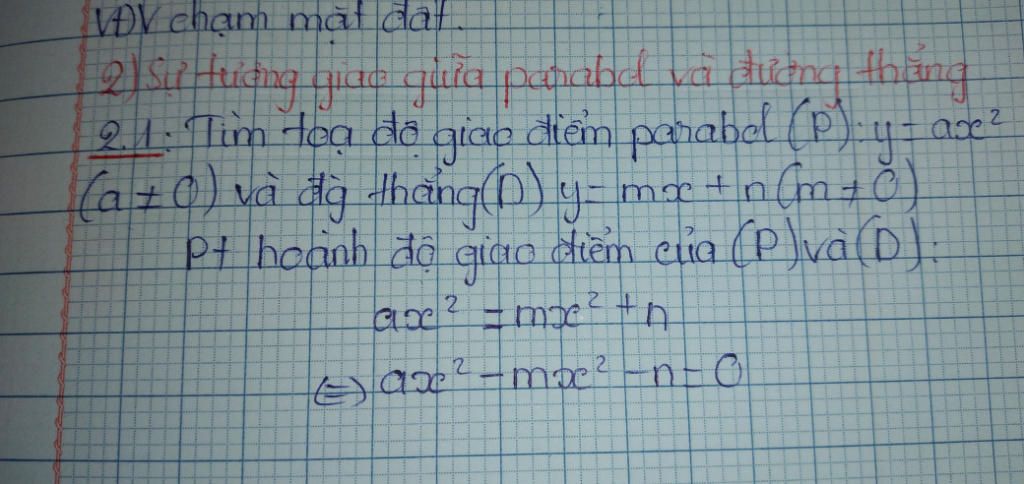 VĐV chạm mặt đất.
2) Sự tương giao giữa parabol và đường thẳng
2.1: Tìm tọa độ giao điểm parabol (P): y = ax²
(a ≠ 0) và đg thẳng (D) y = mx + n (m ≠ 0)
Pt hoành độ giao điểm của (P) và (D):
ax² = mx² + n
⇔ ax² - mx² - n = 0